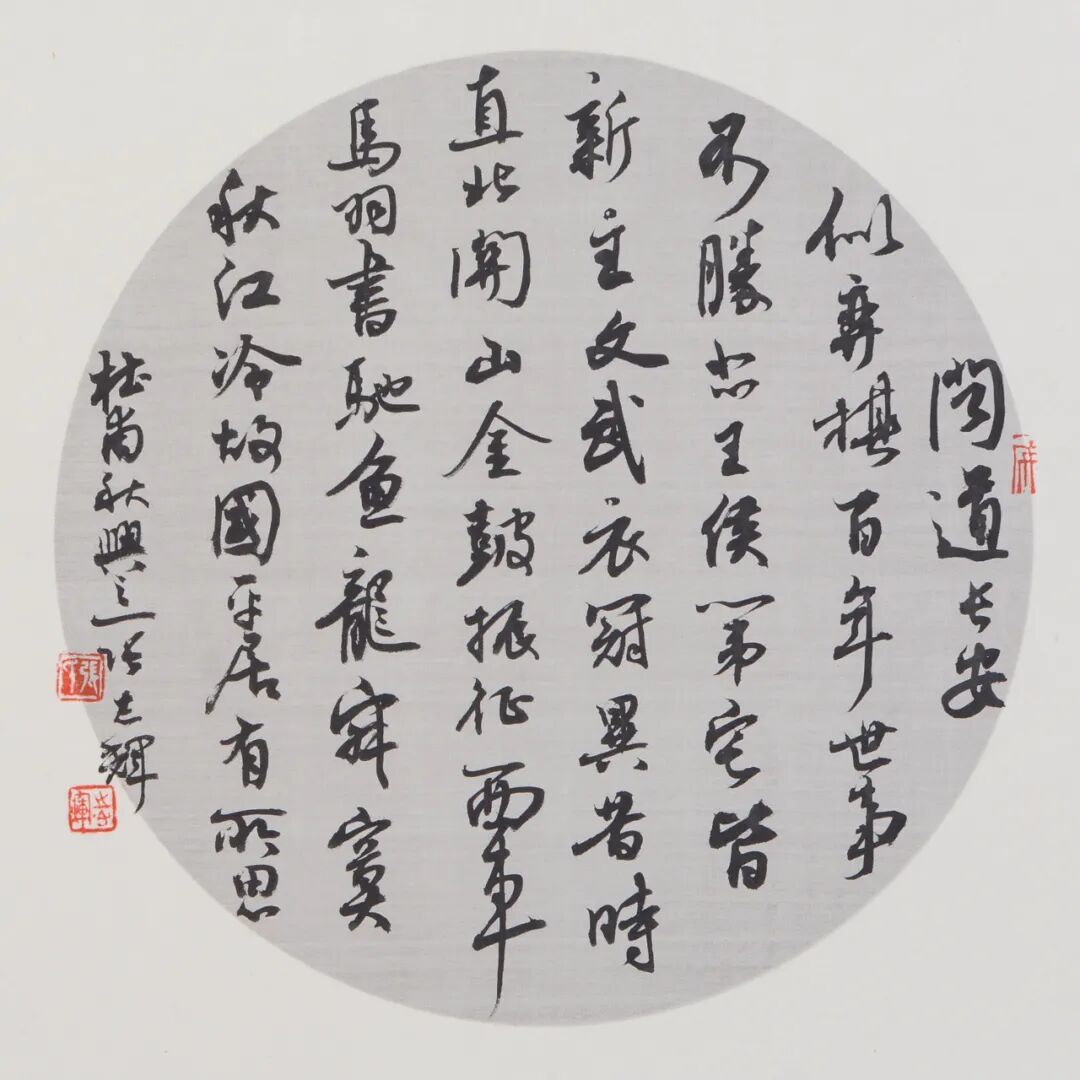 聞道長安
似弈棋百年世事
不勝悲王侯第宅皆
新主文武衣冠異昔時
直北關山金鼓振征西車
馬羽書馳魚龍寂寞
秋江冷故國平居有所思
杜甫秋興之張志輝